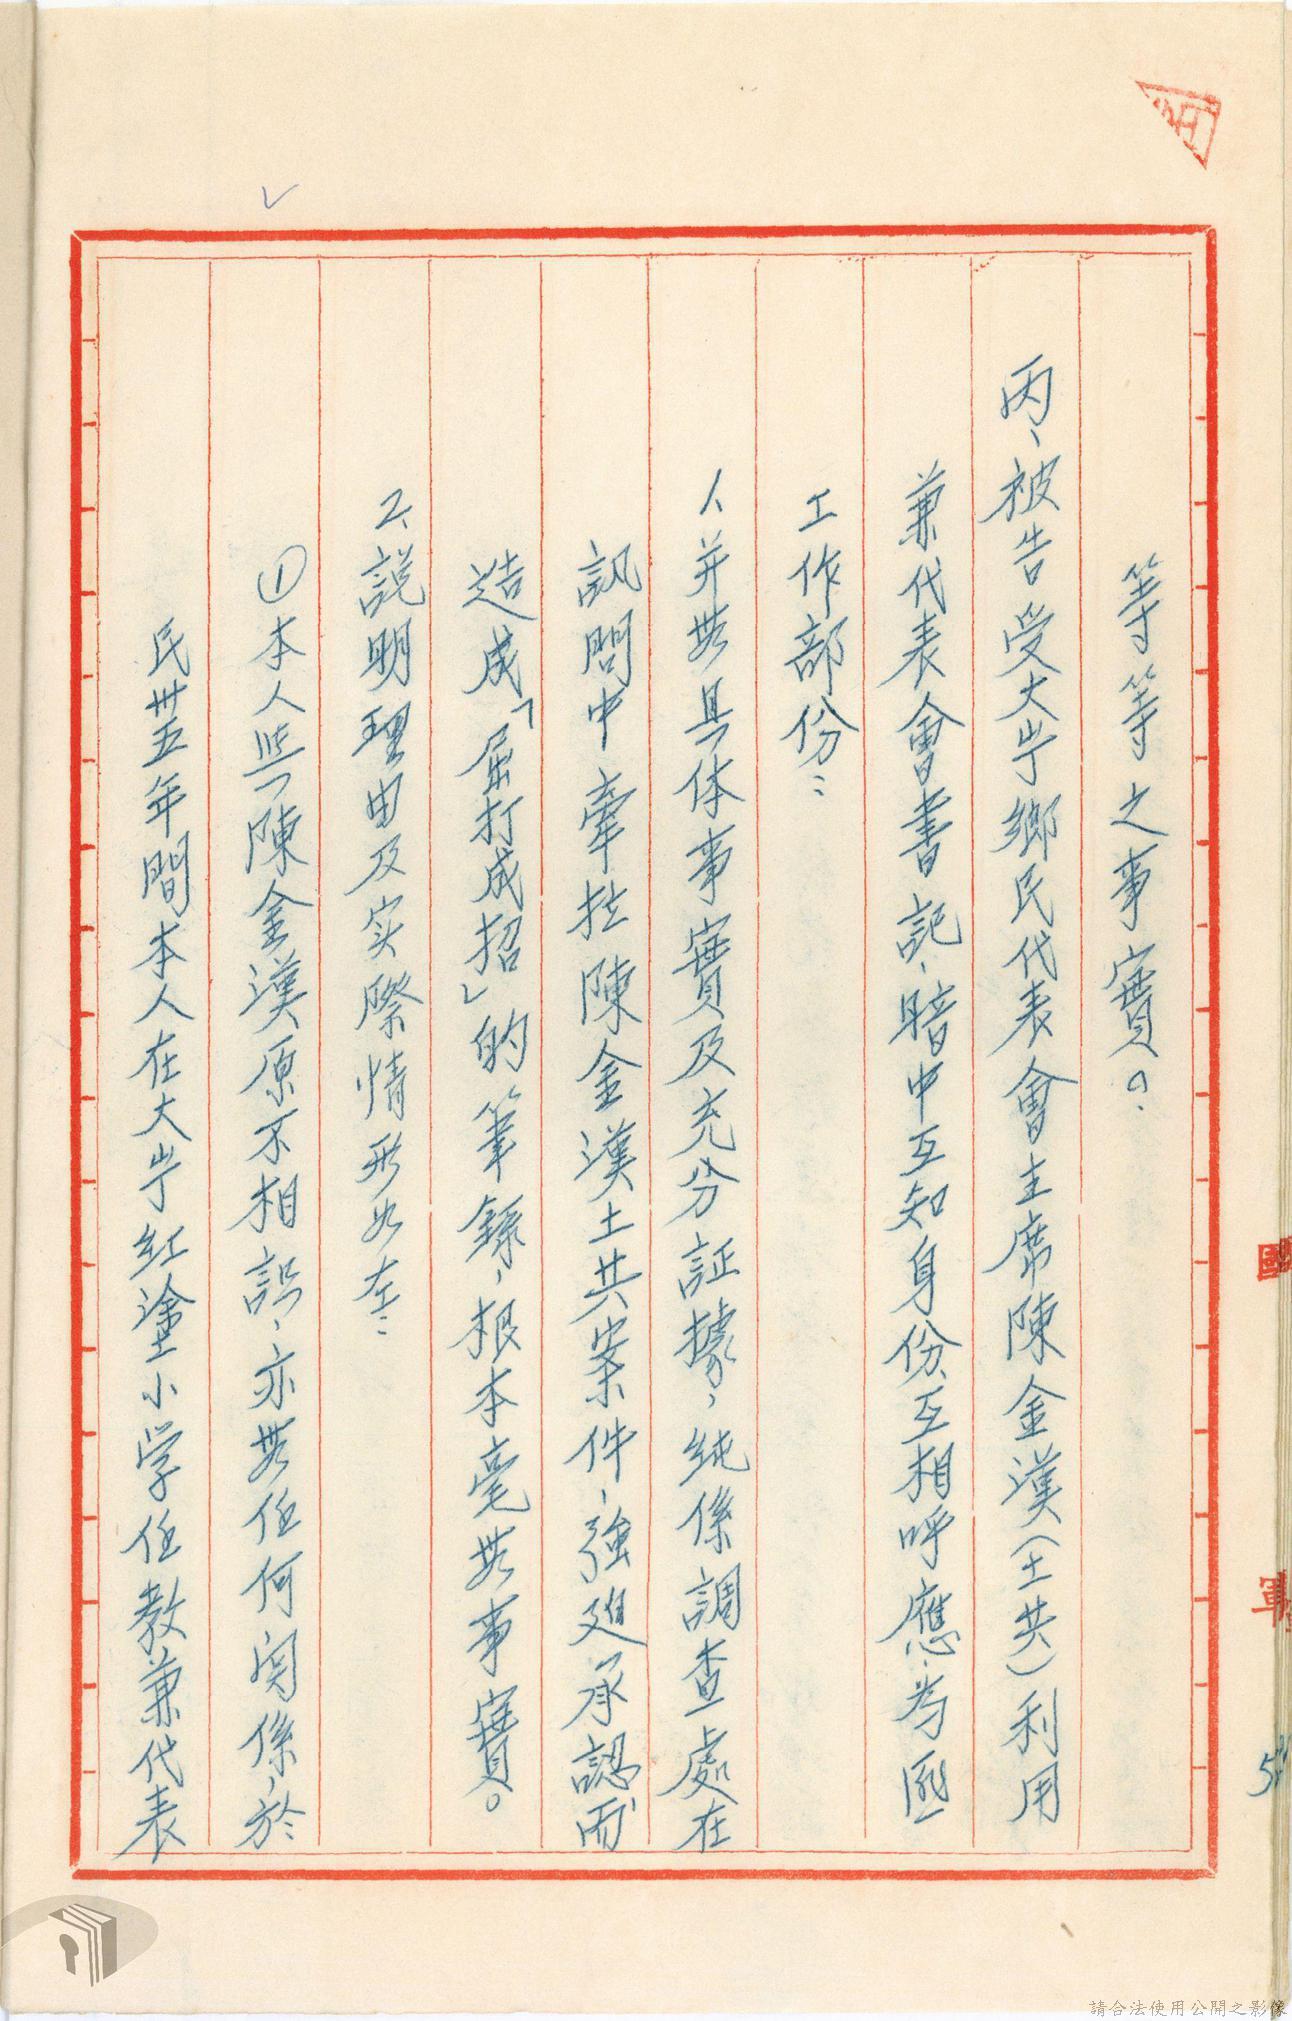 等等之事實。
丙、被告受大屿鄉民代表會主席陳金漢(土共)利用
兼代表會書記、暗中互知身份、互相呼應、為匪
工作部份：
1、并無具体事實及充分証據，純係調查處在
訊問中牽扯陳金漢土共案件、強廹承認而
造成「屈打成招」的筆錄，根本毫無事實。
2、說明理由及实際情形如左：
①本人與陳金漢原不相認、亦無任何関係、於
民卅五年間本人在大屿紅塗小学任教兼代表
國
軍
請合法使用公開之影像